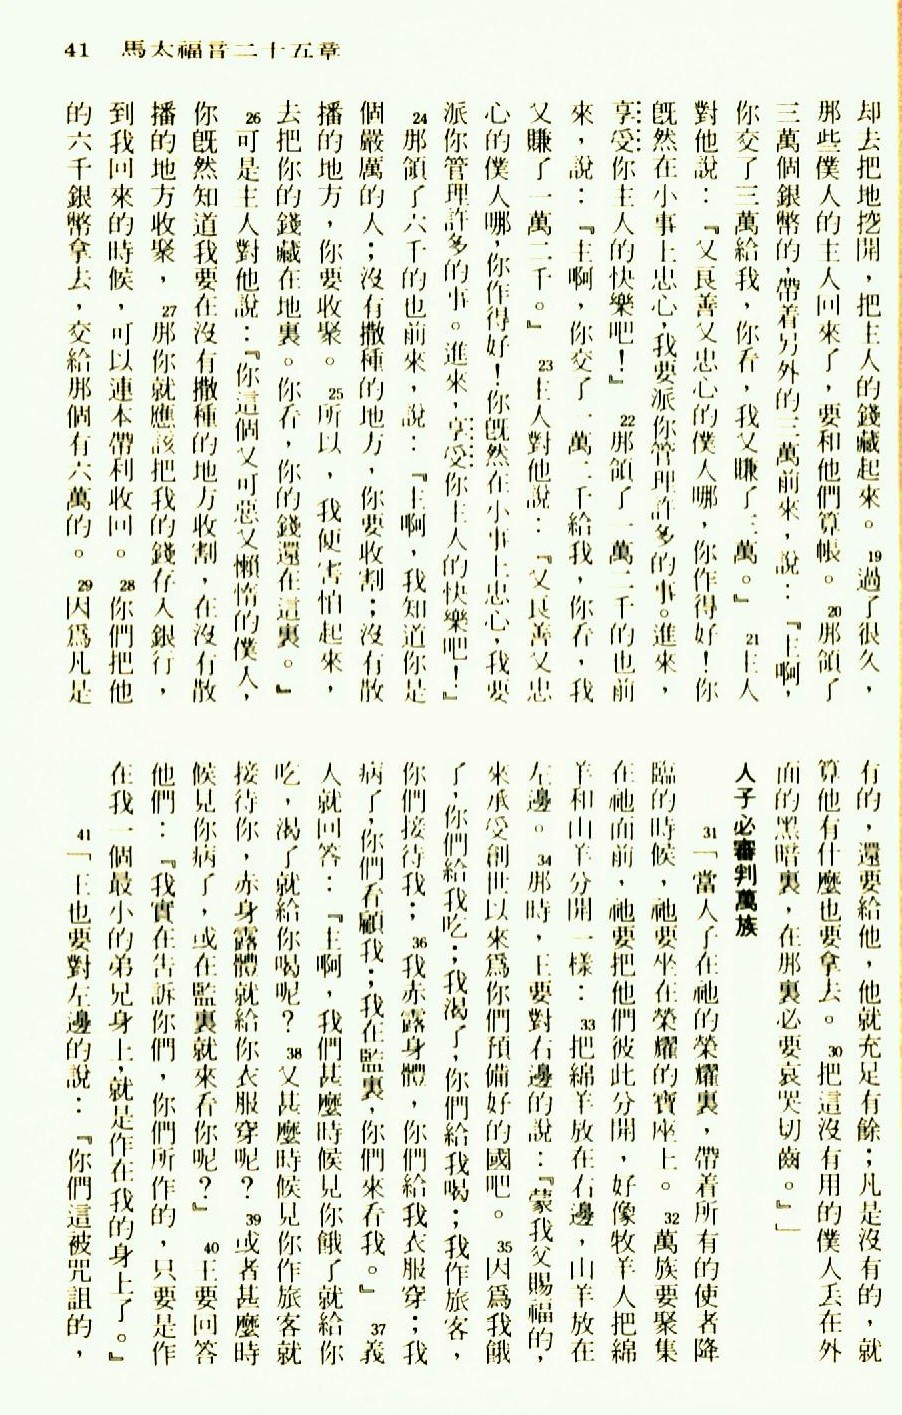 41 馬太福音二十五章
却去把地挖開，把主人的錢藏起來。19過了很久，
那些僕人的主人回來了，要和他們算帳。20那領了
三萬個銀幣的，帶着另外的三萬前來，說：『主啊，
你交了三萬給我，你看，我又賺了三萬。』21主人
對他說：『又良善又忠心的僕人哪，你作得好！你
既然在小事上忠心，我要派你管理許多的事。進來，
享受你主人的快樂吧！』22那領了一萬二千的也前
來，說：『主啊，你交了一萬二千給我，你看，我
又賺了一萬二千。』23主人對他說：『又良善又忠
心的僕人哪，你作得好！你既然在小事上忠心，我要
派你管理許多的事。進來，享受你主人的快樂吧！』
24那領了六千的也前來，說：『主啊，我知道你是
個嚴厲的人；沒有撒種的地方，你要收割；沒有散
播的地方，你要收聚。25所以，我便害怕起來，
去把你的錢藏在地裏。你看，你的錢還在這裏。』
26可是主人對他說：『你這個又可惡又懶惰的僕人，
你既然知道我要在沒有撒種的地方收割，在沒有散
播的地方收聚，27那你就應該把我的錢存入銀行，
到我回來的時候，可以連本帶利收回。28你們把他
的六千銀幣拿去，交給那個有六萬的。29因爲凡是
有的，還要給他，他就充足有餘；凡是沒有的，就
算他有什麼也要拿去。30把這沒有用的僕人丟在外
面的黑暗裏，在那裏必要哀哭切齒。』」
人子必審判萬族
31「當人子在祂的榮耀裏，帶着所有的使者降
臨的時候，祂要坐在榮耀的寶座上。32萬族要聚集
在祂面前，祂要把他們彼此分開，好像牧羊人把綿
羊和山羊分開一樣：33把綿羊放在右邊，山羊放在
左邊。34那時，王要對右邊的說：『蒙我父賜福的，
來承受創世以來爲你們預備好的國吧。35因爲我餓
了，你們給我吃；我渴了，你們給我喝；我作旅客，
你們接待我；36我赤露身體，你們給我衣服穿；我
病了，你們看顧我；我在監裏，你們來看我。』37義
人就回答：『主啊，我們甚麼時候見你餓了就給你
吃，渴了就給你喝呢？38又甚麼時候見你作旅客就
接待你，赤身露體就給你衣服穿呢？39或者甚麼時
候見你病了，或在監裏就來看你呢？』40王要回答
他們：『我實在告訴你們，你們所作的，只要是作
在我一個最小的弟兄身上，就是作在我的身上了。』
41「王也要對左邊的說：『你們這被咒詛的，